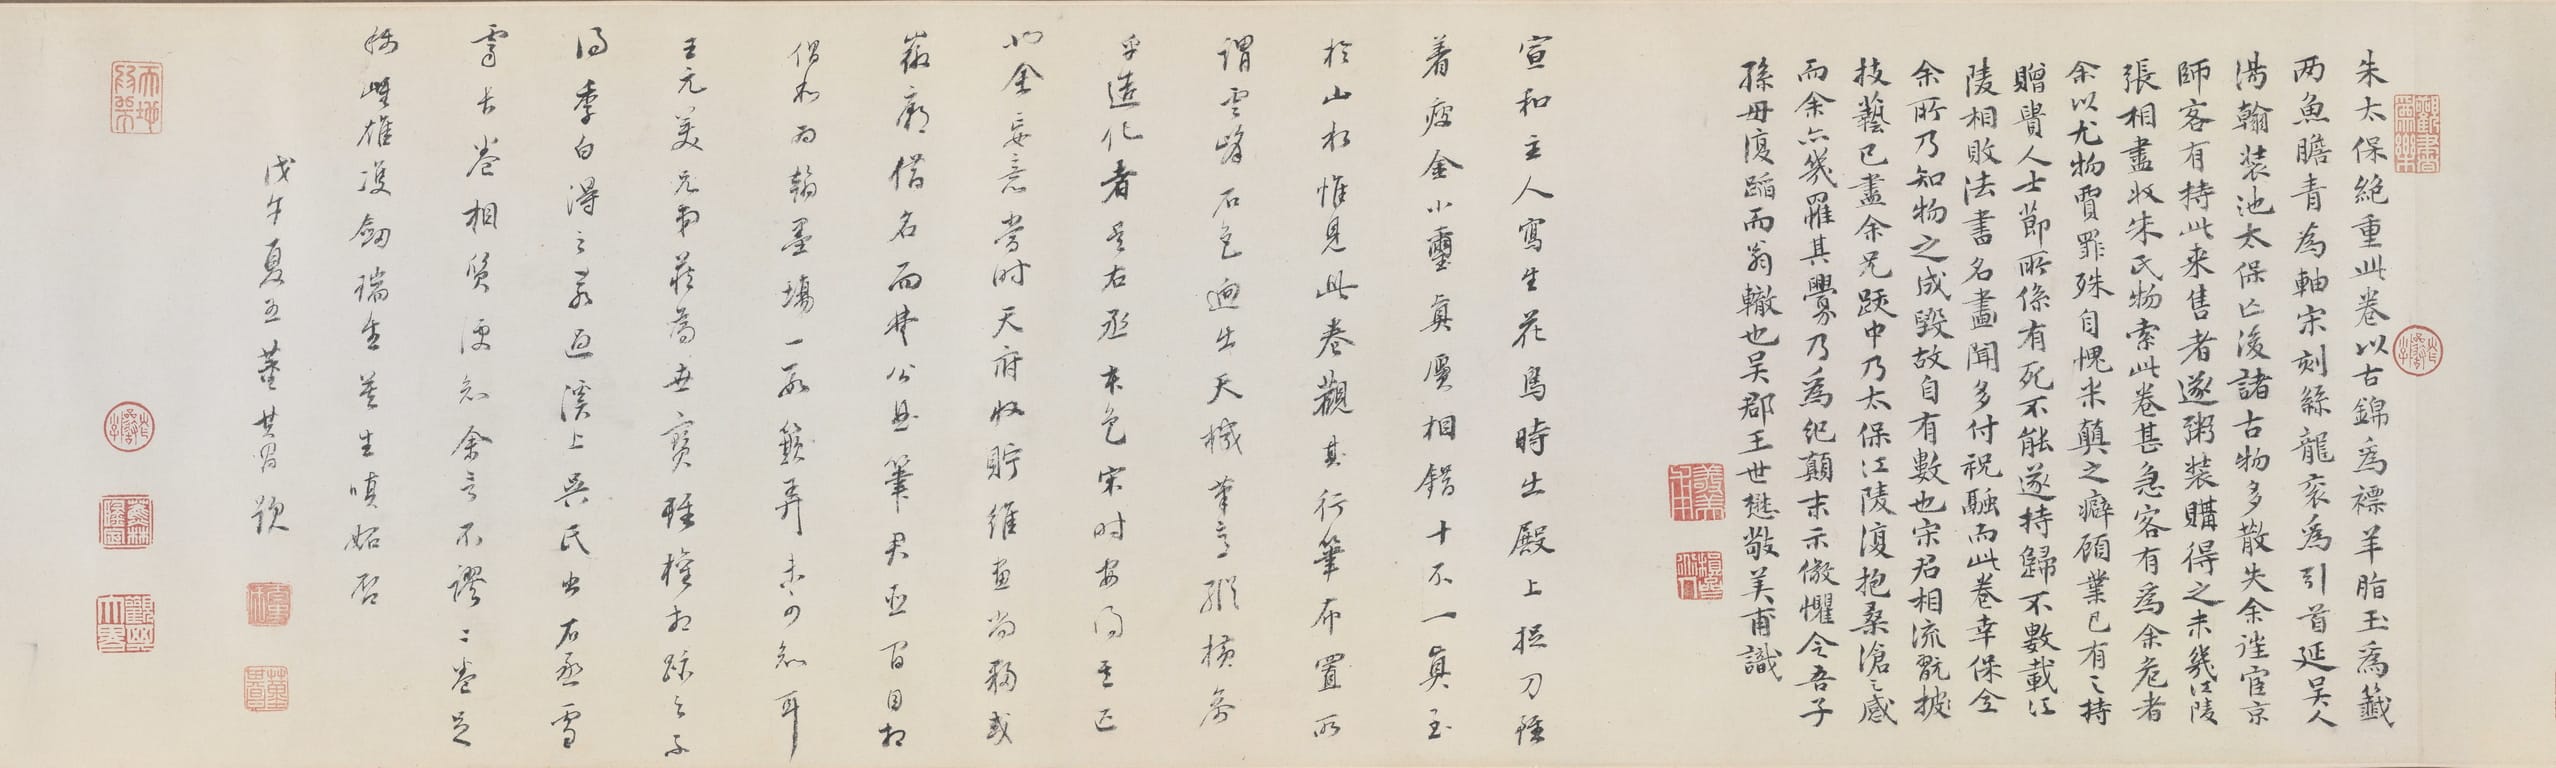 朱太保絕重此卷以古錦為褾羊脂玉為籤
兩魚膽青為軸宋刻絲龍袞為引首延吳人
湯翰裝池太保亡後諸古物多散失余往宦京
師客有持此來售者遂粥裝購得之未幾江陵
張相盡收朱氏物索此卷甚急客有為余危者
余以尤物賈罪殊自愧米顛之癖顧業已有之持
贈貴人士節所係有死不能遂持歸不數載江
陵相敗法書名畫聞多付祝融而此卷幸保全
余所乃知物之成毀故自有數也宋君相流翫披
技藝已盡余兄跋中乃太保江陵復抱桑滄之感
而余亦幾罹其釁乃為紀顛末示儆懼令吾子
孫毋復蹈而翁轍也吳郡王世懋敬美甫識
宣和主人寫生花鳥時出殿上捉刀雖
着瘦金小璽真贗相錯十不一真至
於山水惟見此卷觀其行筆布置所
謂雲峰石色迥出天機筆意縱橫參
乎造化者是右丞本色宋時安得其匹
以余妄意當時天府收貯維畫尚夥或
徽廟借名而楚公曲筆君臣間自相
倡和為翰墨場一段簸弄未可知耳
王元美兄弟藏為世寶雖權相跡之不
得季白得之若過溪上吳氏出右丞雪
霽長卷相質便知余言不謬二卷足
稱雌雄雙劍瑞生莫生嗔妒否
戊午夏五董其昌題